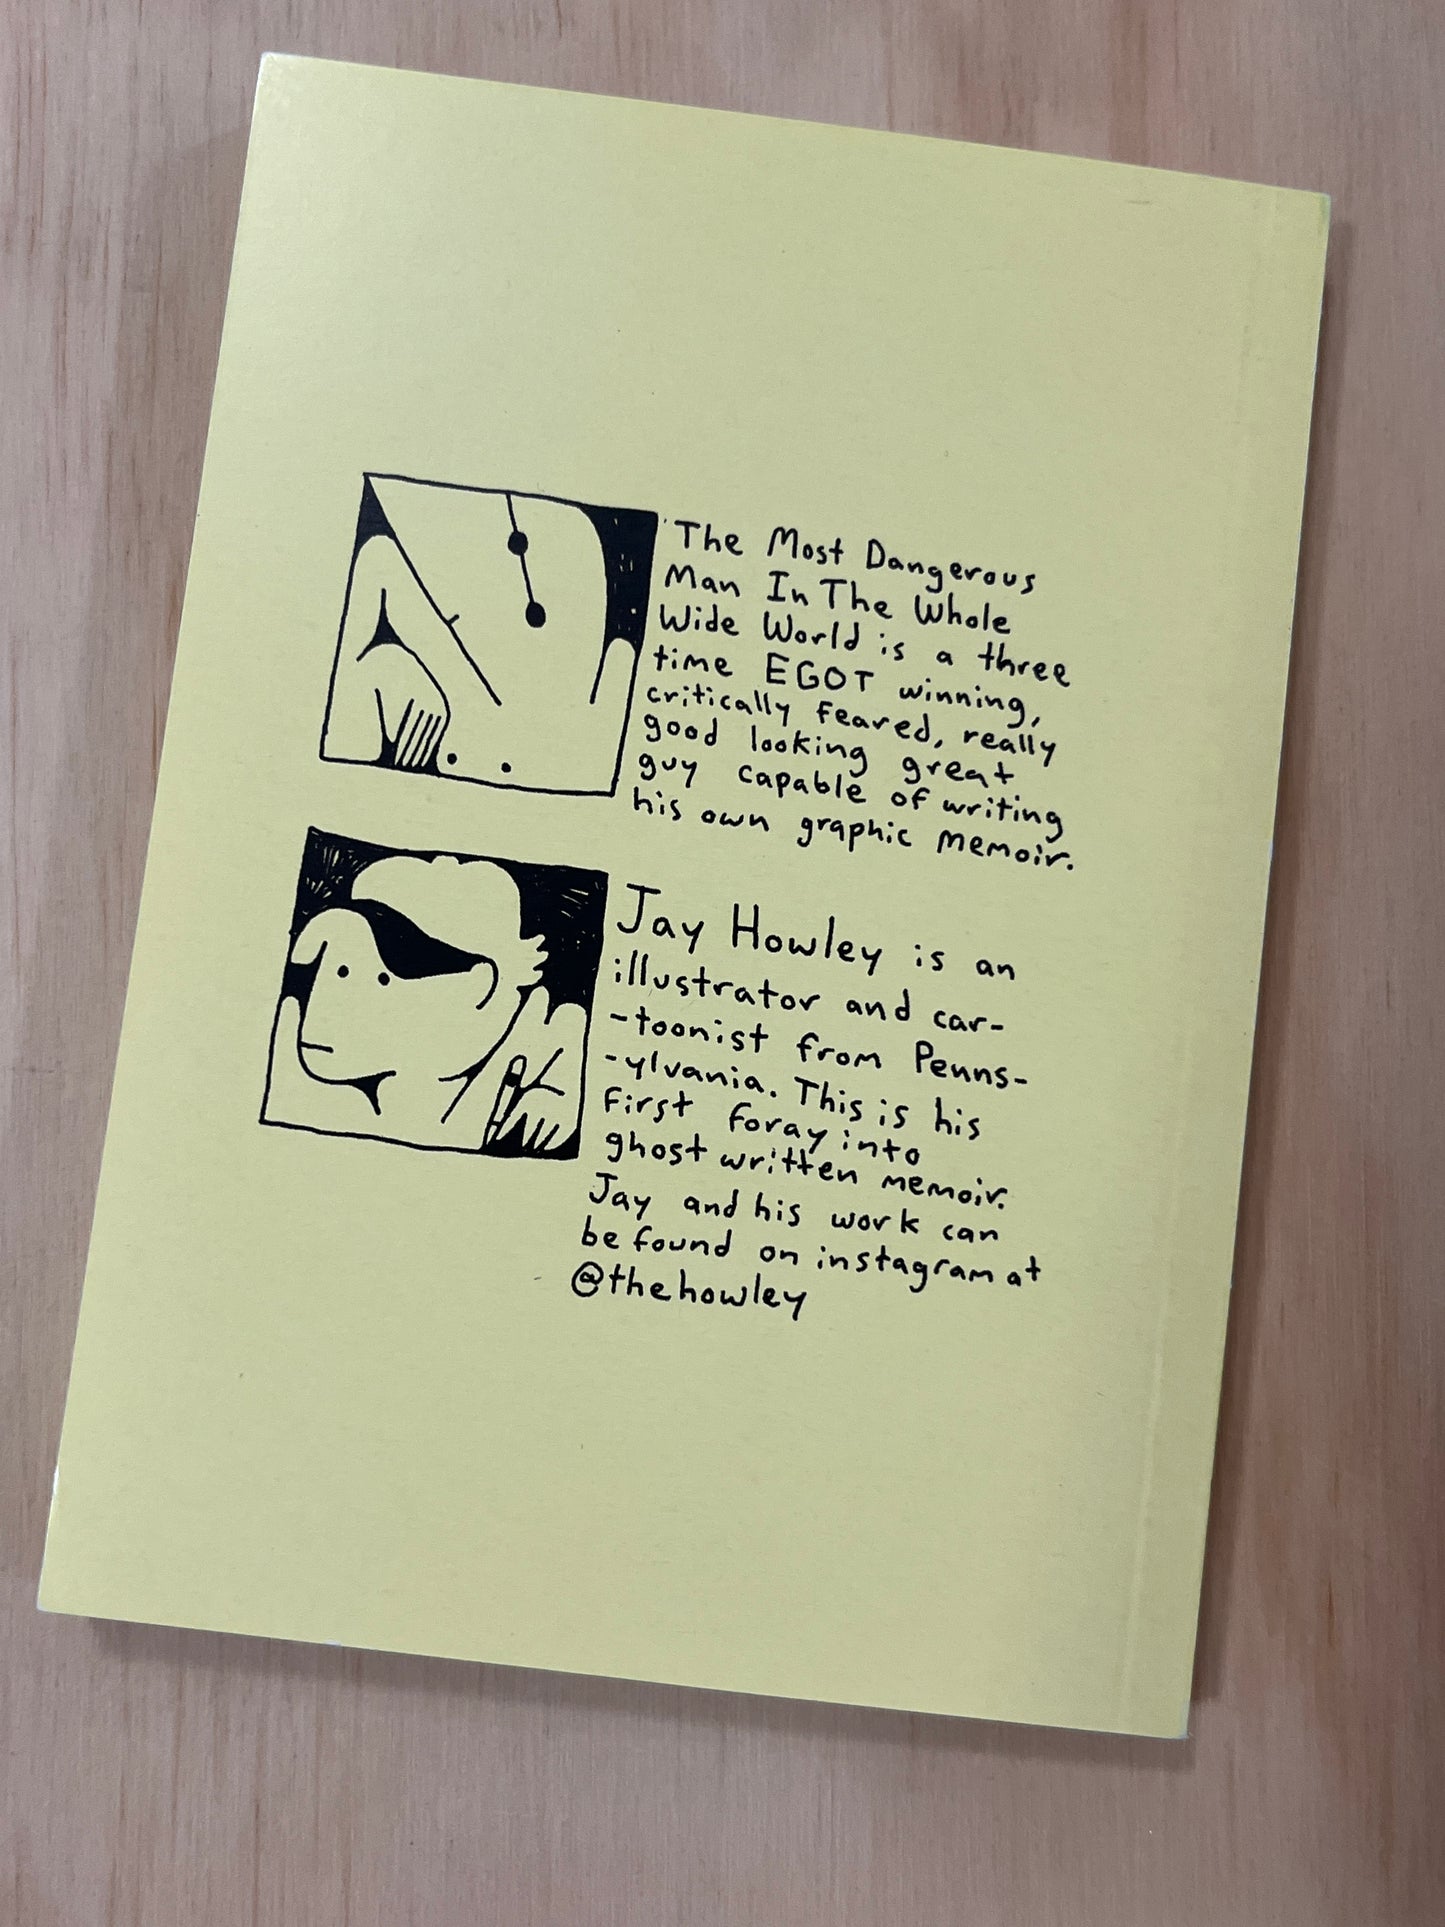 The Most Dangerous
Man In The Whole
Wide World is a three
time EGOT winning,
critically feared, really
good looking great
guy capable of writing
his own graphic memoir.
Jay Howley is an
illustrator and car-
-toonist from Penns-
-ylvania. This is his
first foray into
ghost written memoir.
Jay and his work can
be found on instagram at
@thehowley